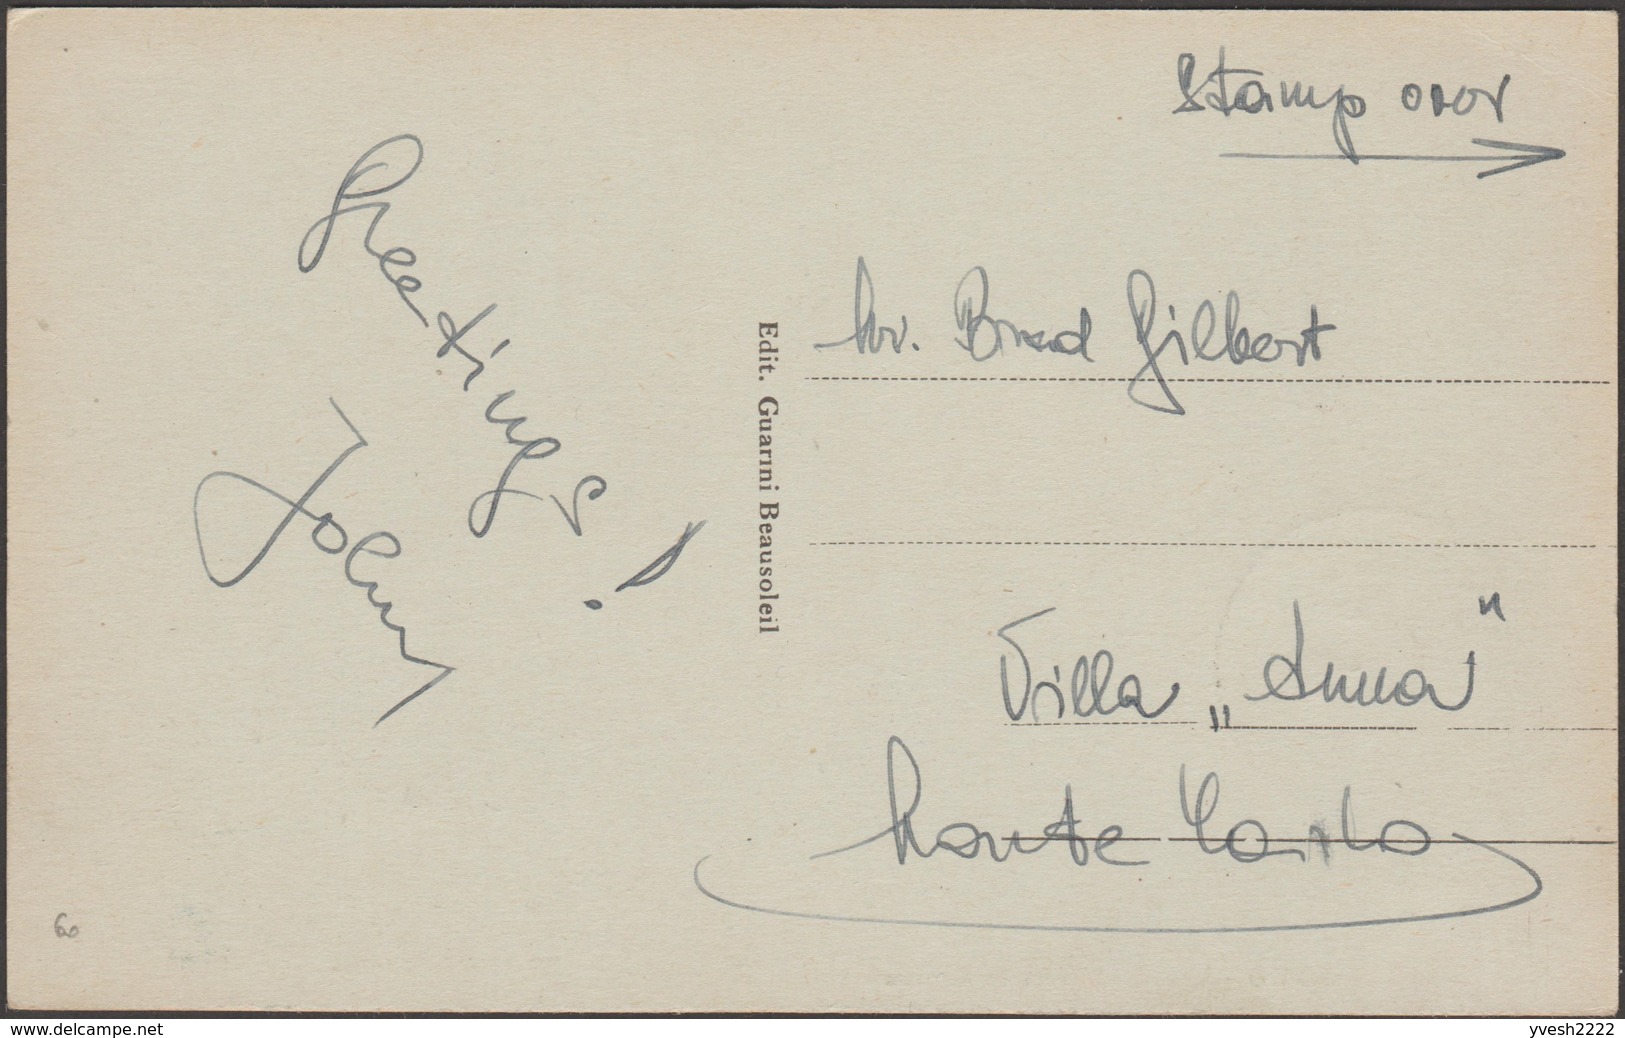 Stamp over
Greetings!
John
Mr. Brad Gilbert
Edit. Guarini Beausoleil
Villa „Anna"
Monte Carlo
60
www.delcampe.net
yvesh2222